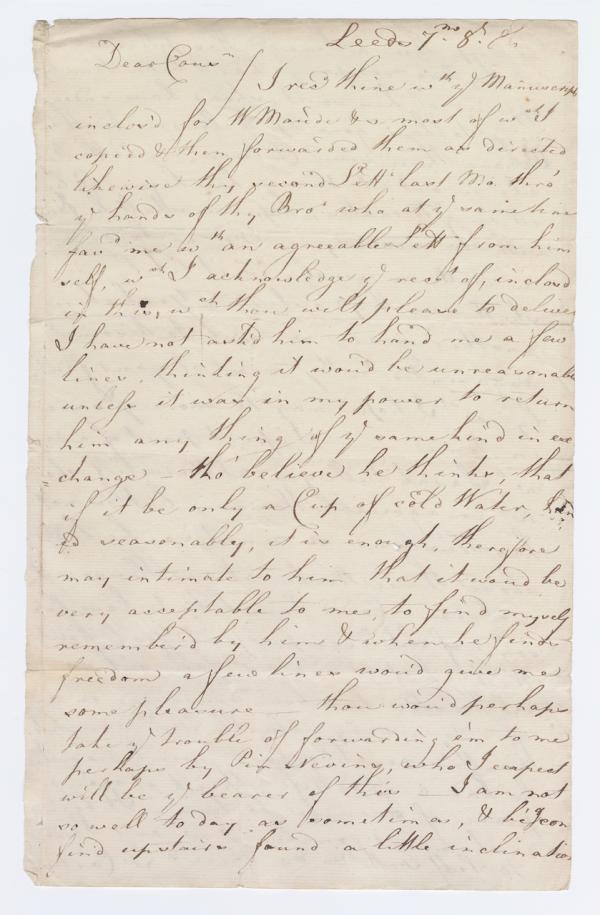 Leeds 7mo. 8th.
Dear Cousn
I recd thine wth ye Manuscript
inclos'd for W Maude &c most of wch I
copied & then forwarded them as directed
likewise thy second Lettr last Mo. thro'
ye hands of thy Bror who at ye same time
favd me wth an agreeable Lettr from him
self, wch I acknowledge ye rect of, inclosd
in this, wch thou wilt please to deliver
I have not ask'd him to hand me a few
lines, thinking it wou'd be unreasonable
unless it was in my power to return
him any thing of ye same kind in ex
change - tho' believe he thinks, that
if it be only a Cup of cold Water, han
d'd seasonably, it is enough, therefore
may intimate to him that it wou'd be
very acceptable to me, to find myself
remember'd by him & when he finds
freedom a few lines wou'd give me
some pleasure - thou wou'd perhaps
take ye trouble of forwarding em to me
perhaps by Pim Nevins, who I expect
will be ye bearer of this - I am not
so well to day as sometimes, & being con
fin'd upstairs found a little inclination